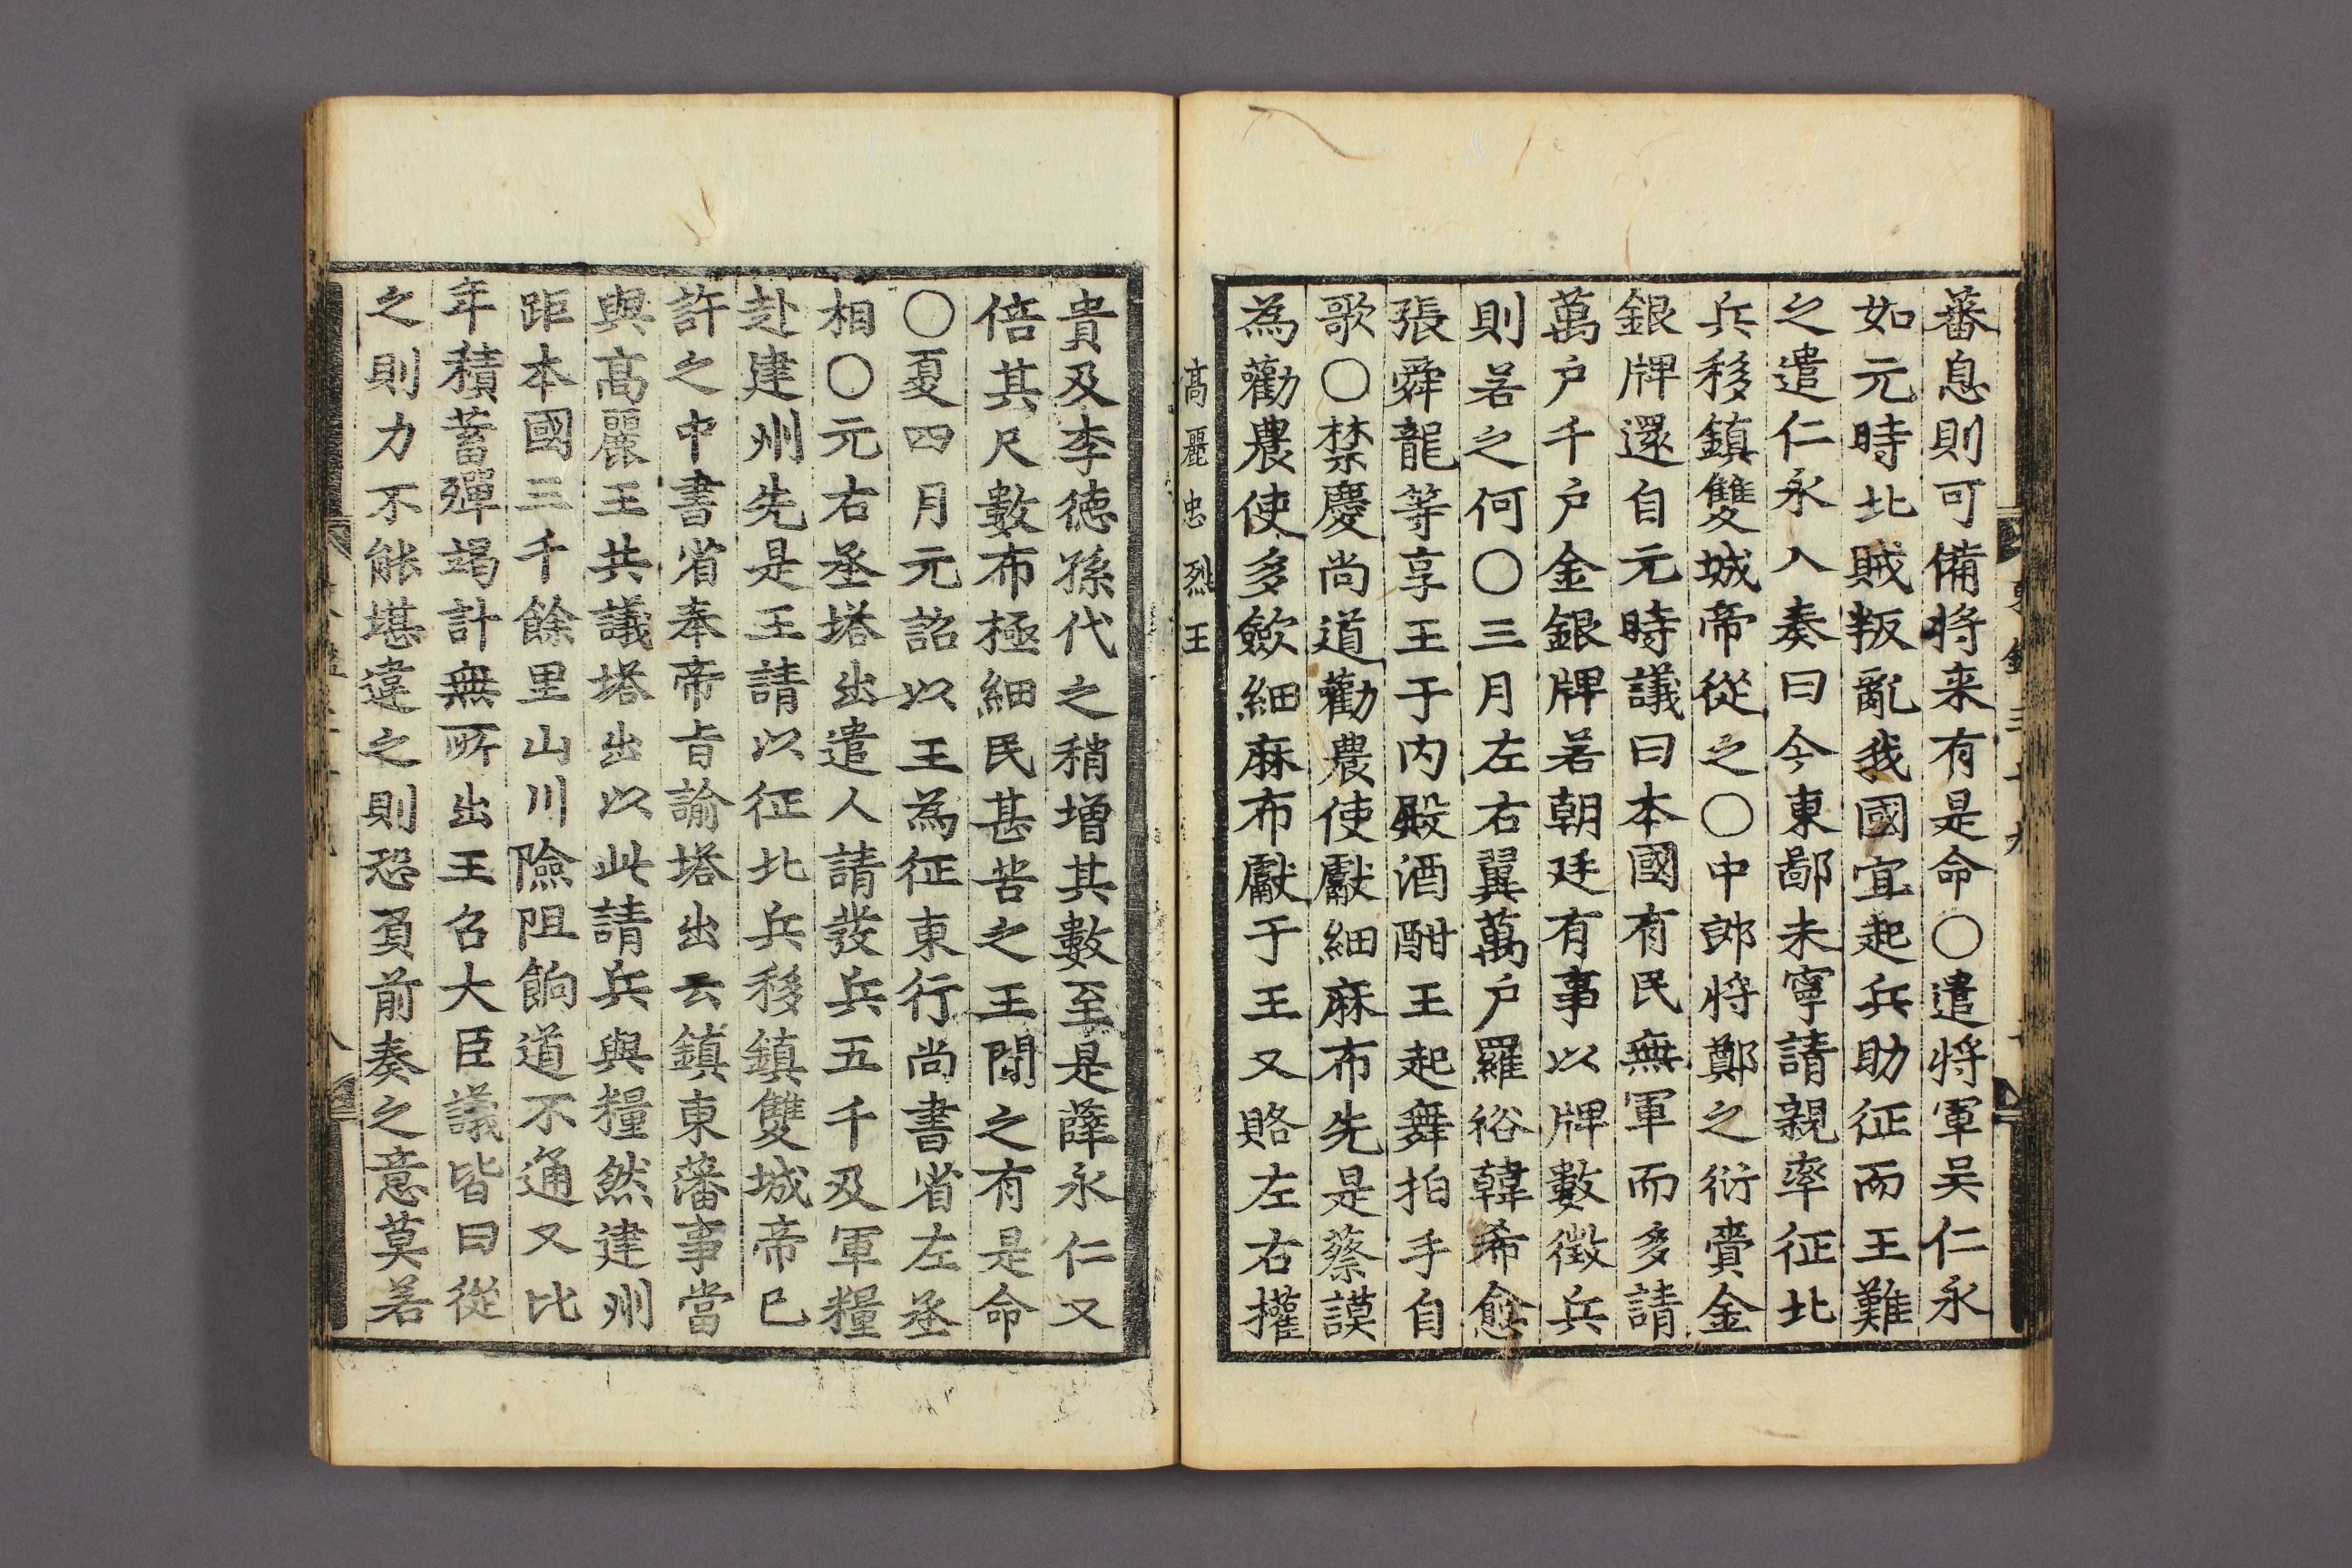 蕃息則可備将来有是命○遣将軍吴仁永
如元時北賊叛亂我國宜起兵助征而王難
之遣仁永入奏曰今東鄙未寧請親率征北
兵移鎮雙城帝從之○中郎将鄭之衍賷金
銀牌還自元時議曰本國有民無軍而多請
萬户千户金銀牌若朝廷有事以牌數徴兵
則若之何○三月左右翼萬户羅裕韓希愈
張舜龍等享王于内殿酒酣王起舞拍手自
歌○禁慶尚道勸農使獻細麻布先是蔡謨
為勸農使多歛細麻布獻于王又賂左右權
高麗忠烈王
貴及李徳孫代之稍增其數至是薛永仁又
倍其尺數布極細民甚苦之王聞之有是命
○夏四月元詔以王為征東行尚書省左丞
相○元右丞塔出遣人請發兵五千及軍糧
赴建州先是王請以征北兵移鎮雙城帝已
許之中書省奉帝旨諭塔出云鎮東藩事當
與高麗王共議塔出以此請兵與糧然建州
距本國三千餘里山川險阻餉道不通又比
年積蓄殫竭計無所出王召大臣議皆曰從
之則力不能堪違之則恐負前奏之意莫若